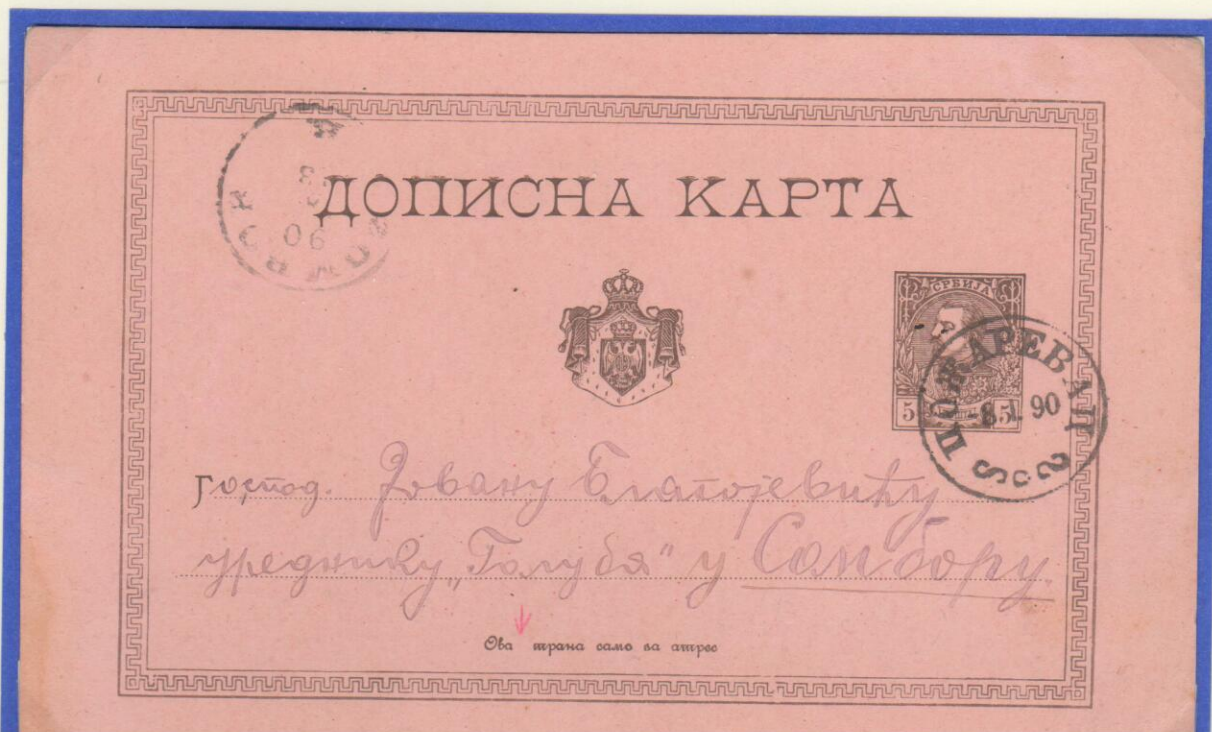 ДОПИСНА КАРТА
СРБИЈА
5 5
ПОЖАРЕВАЦ
-8.1.90
Господ. Јовану Благојевићу
уреднику „Голуба" у Сомбору.
Ова трана само за атрес
90